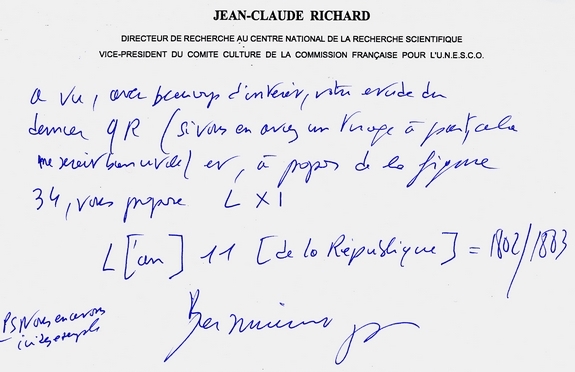 JEAN-CLAUDE RICHARD
DIRECTEUR DE RECHERCHE AU CENTRE NATIONAL DE LA RECHERCHE SCIENTIFIQUE
VICE-PRESIDENT DU COMITE CULTURE DE LA COMMISSION FRANÇAISE POUR L'U.N.E.S.C.O.
a vu, avec beaucoup d'intérêt, votre étude du
dernier (si vous en avez un tirage à part, cela
me serait bien utile) et, à propos de la figure
34, vous propose L XI
L [an] 11 [de la République] = 1802/1803
Bien
PS Nous en avons
ici des exempls